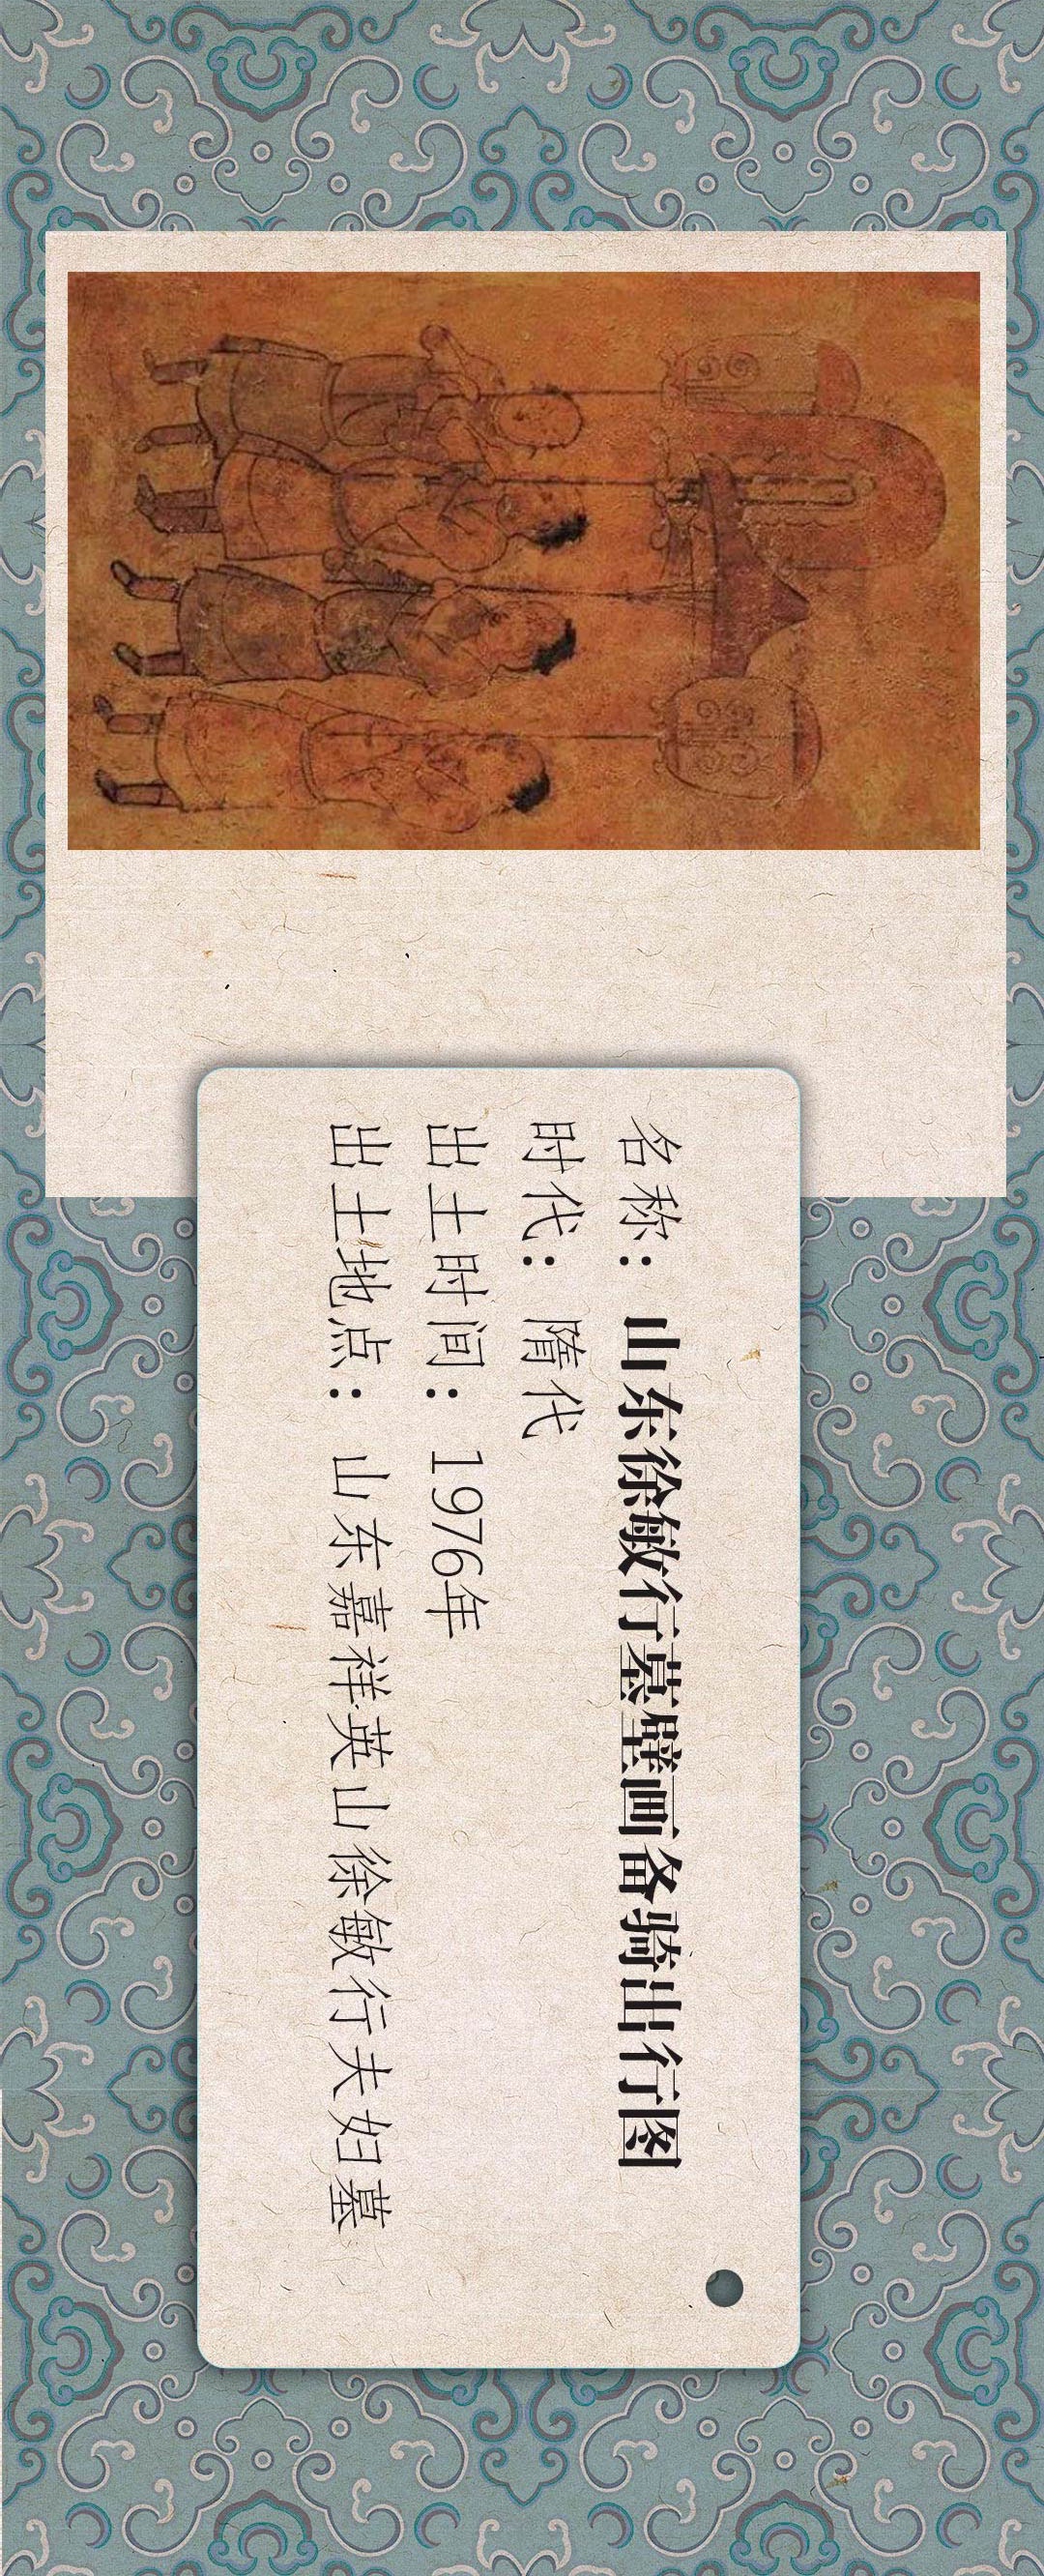 名称：山东徐敏行墓壁画备骑出行图
时代：隋代
出土时间：1976年
出土地点：山东嘉祥英山徐敏行夫妇墓